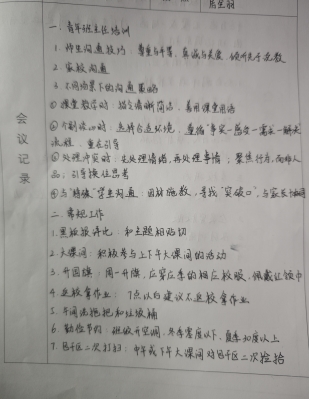 马玉丽
会议记录
一、青年班主任培训
1. 师生沟通技巧：尊重与平等、真诚与关爱、倾听先于说教
2. 家校沟通
3. 不同场景下的沟通策略
①课堂教学时：指令清晰简洁，善用课堂用语
②个别谈心时：选择合适环境，遵循“事实—感受—需求—解决”
流程，重在引导
③处理冲突时：先处理情绪，再处理事情；聚焦行为，而非人
品；引导换位思考
④与“特殊”学生沟通：因材施教，寻找“突破口”，与家长协同
二、常规工作
1. 黑板报评比：和主题相贴切
2. 大课间：积极参与上下午大课间的活动
3. 升国旗：周一升旗，应穿应季的相应校服，佩戴红领巾
4. 进校拿作业：7点以后建议不进校拿作业
5. 午间洗拖把和垃圾桶
6. 勤俭节约：班级开空调，冬季零度以下，夏季30度以上
7. 包干区二次打扫：中午或下午大课间对包干区二次捡拾